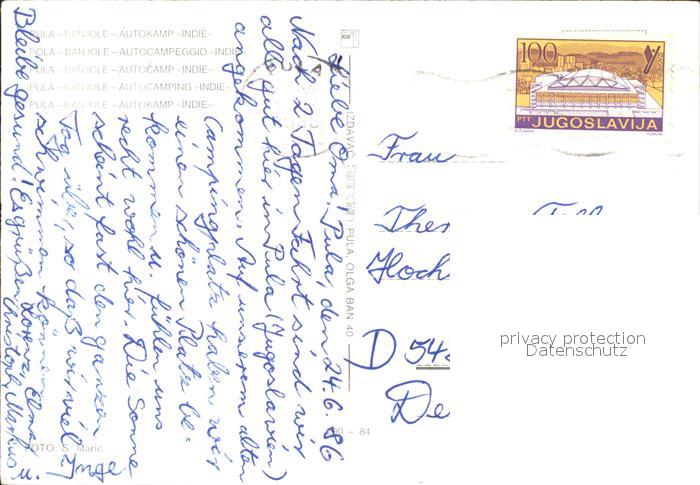 PULA - BANJOLE - AUTOKAMP -INDIE-
POLA - BANJOLE - AUTOCAMPEGGIO -INDIE-
PULA - BANJOLE - AUTOKAMP -INDIE-
PULA - BANJOLE - AUTOCAMPING -INDIE-
PULA - BANJOLE - AUTOKAMP -INDIE-
Pula, den 24.6.86
Liebe Oma!
Nach 2 Tagen Fahrt sind wir
alle gut hier in Pula (Jugoslawien)
angekommen. Auf unserem alten
Campingplatz haben wir
einen schönen Platz be-
kommen u. fühlen uns
recht wohl hier. Die Sonne
scheint fast den ganzen
Tag über, so daß wir viel
schwimmen können.
Bleibe gesund! Es grüßen
Lorenz, Elmar
Christoph, Markus u.
Inge
FOTO: S. Marić
IZDAVAČ
PULA, OLGA BAN 40
- 84
PULA
100
PTT JUGOSLAVIJA
Frau
Ther
Hoch
D 54
De
privacy protection
Datenschutz